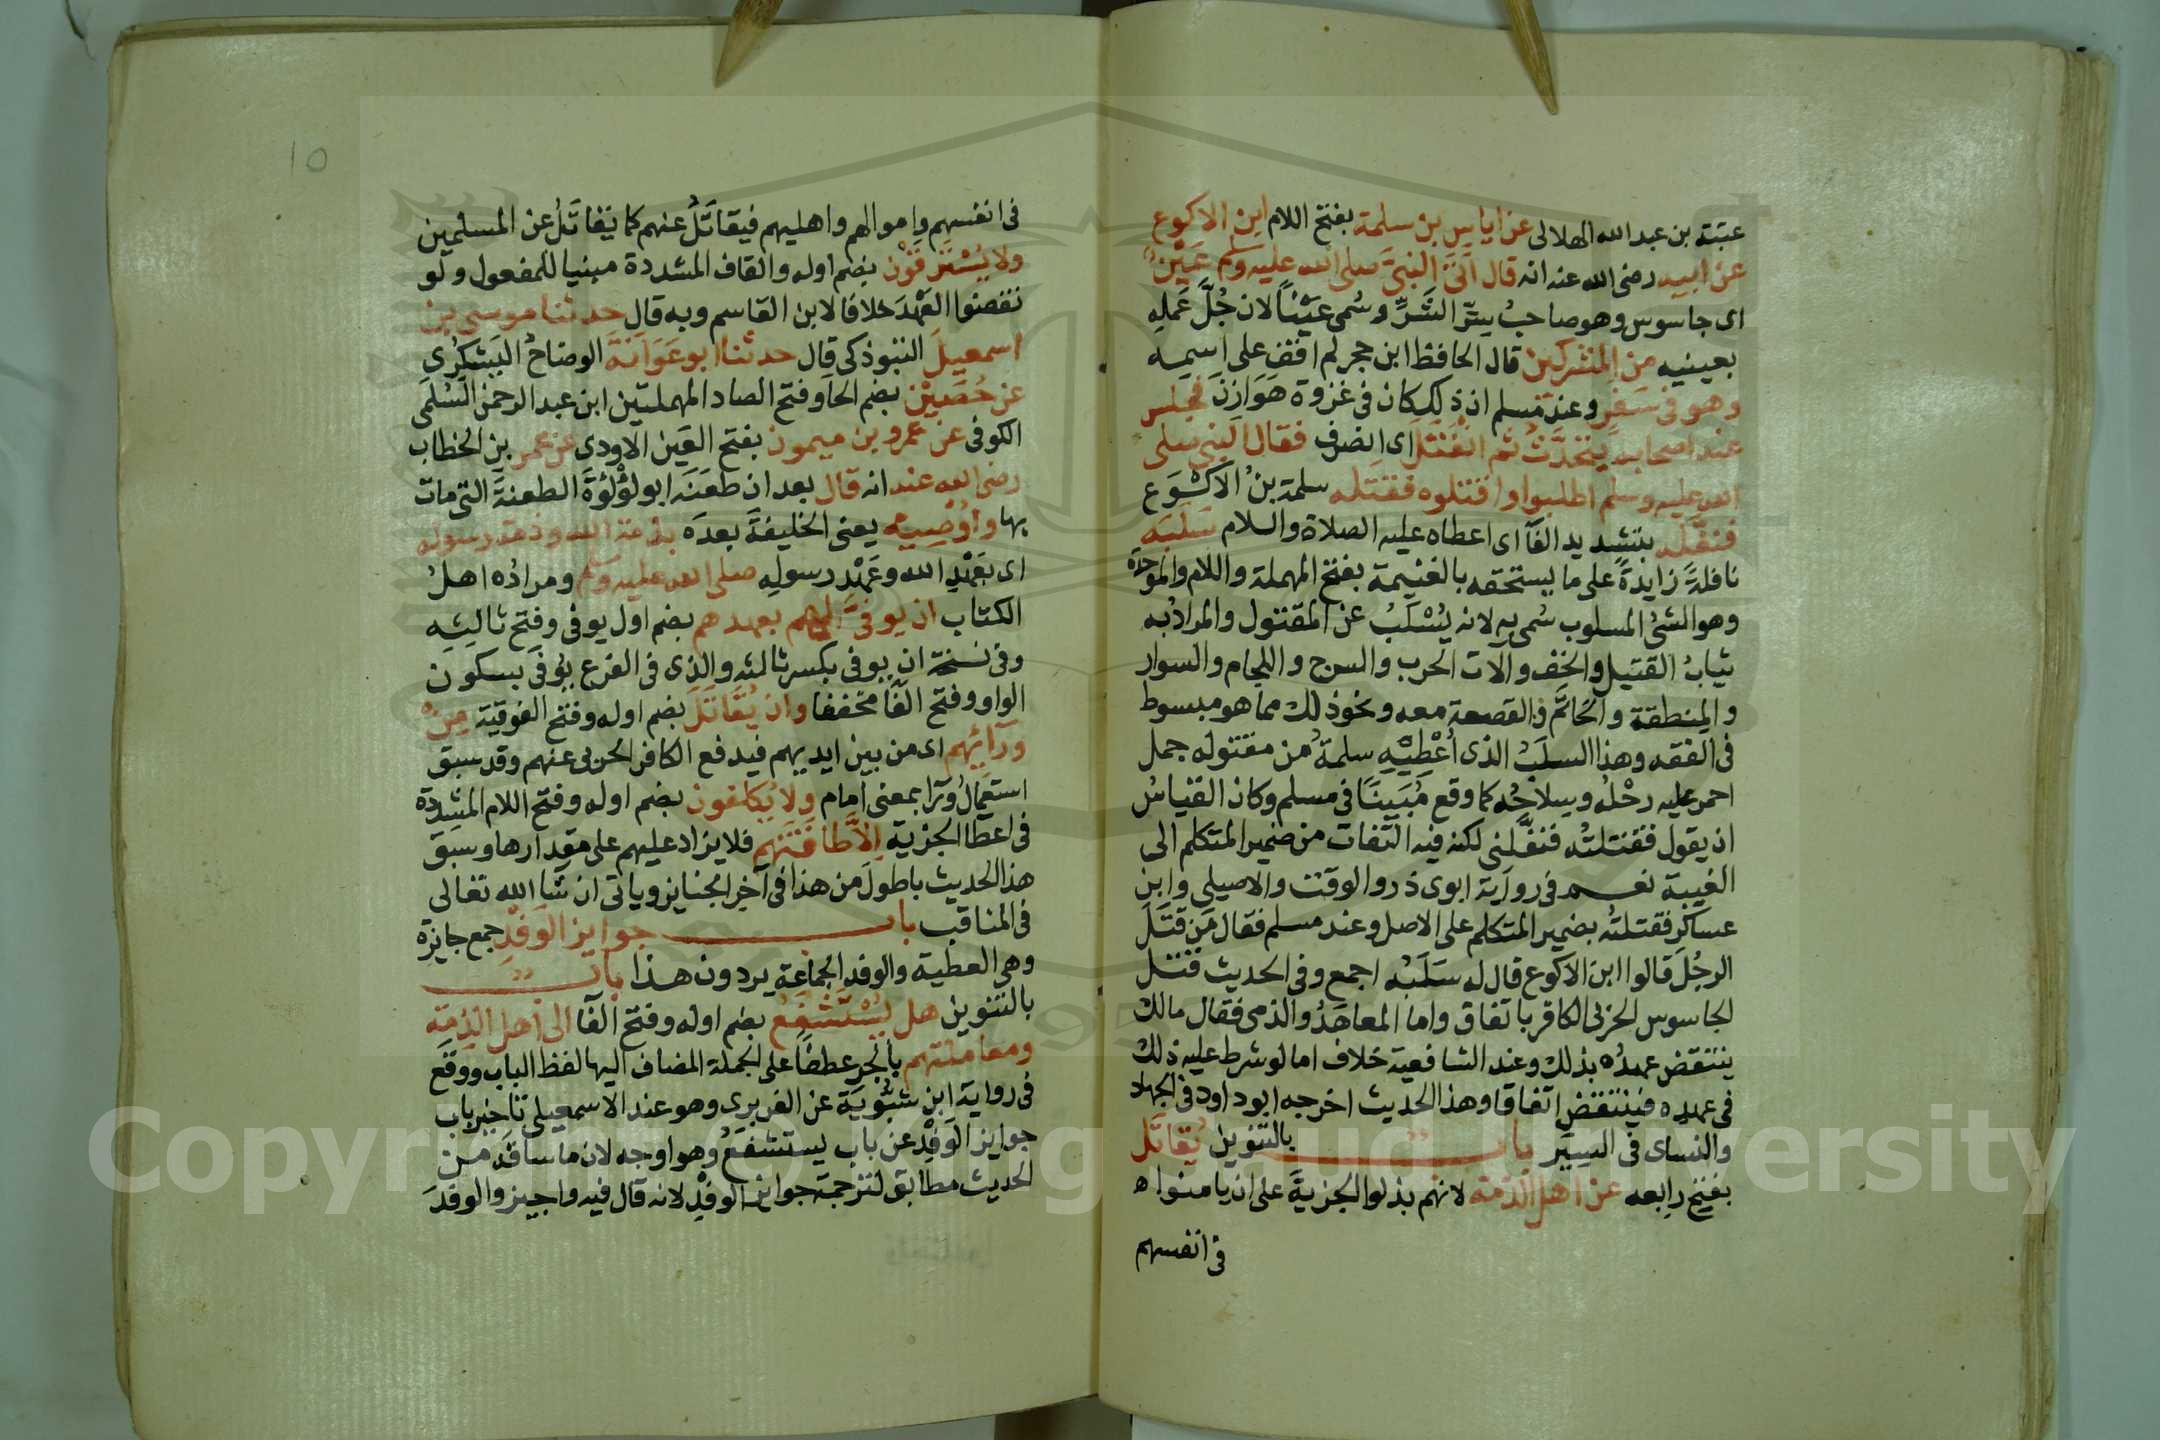 عتبة بن عبد الله الهلالى عن اياس بن سلمة بفتح اللام ابن الاكوع
عن ابيه رضى الله عنه انه قال اَتَى النبىَّ صلى الله عليه وسلم عَيْنٌ
اى جاسوس وهو صاحبُ سِرّ الشَّرِّ وسُمى عَيْنًا لان جُلَّ عَملِهِ
بعينيه من المشركين قال الحافظ ابن حجر لم اقف على اسمِه
وهو فى سَفَرٍ وعند مسلم ان ذلك كان فى غزوة هَوَازِنَ فجلس
عند اصحابه يتحدَّثُ ثم انْفَتَلَ اى انصرف فقال النبى صلى
الله عليه وسلم اطلبوا واقتلوه فقتله سلمة بنُ الاكوَع
فنفَّله بتشديد الفآ اى اعطاه عليه الصلاة والسلام سَلَبَه
نافلةً زايدةً على ما يستحقه بالغنيمة بفتح المهملة واللام والموحدة
وهو الشئُ المسلوب سُمى به لانه يُسْلَبُ عن المقتول والمراد به
ثيابُ القتيل والخف والات الحرب والسرج واللجام والسوار
والمِنطقة والخاتَم والقصعة معه ونحو ذلك مما هو مبسوط
فى الفقه وهذا السلَبُ الذى اُعْطِيَهِ سلمةُ من مقتوله جمل
احمر عليه رحْلُه وسِلاحُه كما وقع مُبَيَّنًا فى مسلم وكان القياسُ
ان يقول فقتلتُه فنفَّلنى لكنه فيه التفات من ضمير المتكلم الى
الغيبة نعم فى رواية ابوى ذر والوقت والاصيلى وابن
عساكر فقتلتُه بضمير المتكلم على الاصل وعند مسلم فقال مَن قَتَلَ
الرجُلَ قالوا ابن الاكوع قال له سَلَبُه اجمع وفى الحديث قتل
لجاسوس الحربى الكافر باتفاق واما المعاهَدُ والذمى فقال مالك
ينتقض عهدُه بذلك وعند الشافعية خلاف اما لو شرط عليه ذلك
فى عهدِه فينتقض اتفاقا وهذا الحديث اخرجه ابو داود فى الجهاد
والنساى فى السِيَر بابٌ بالتنوين يُقاتَل
بفتح رابعه عن اهل الذمة لانهم بذلوا الجزيةَ على ان يامنوا ه
فى انفسهم
10
فى انفسهم واموالهم واهليهم فيقاتَلُ عنهم كما يُقاتَلُ عن المسلمين
ولا يُسْتَرَقُّوْن بضم اوله والقاف المشددة مبنيا للمفعول ولو
نقضوا العَهْدَ خلافا لابن القاسم وبه قال حدثنا موسى بن
اسمعيلَ التبوذكى قال حدثنا ابو عَوَانَة الوضاحُ اليَشكرُى
عن حُصَيْن بضم الحآ وفتح الصاد المهملتين ابن عبد الرحمن السُلَمى
الكوفى عن عمرو بن ميمون بفتح العَين الاودى عن عمر بن الخطاب
رضى الله عنه انه قال بعد ان طعَنَه ابو لؤلؤةَ الطعنةَ التى مات
بها واُوْصِيه يعنى الخليفةَ بعدَه بذمة الله وذمة رسوله
اى بعَهْدِ الله وعَهْد رسولِه صلى الله عليه وسلم ومرادُه اهلُ
الكتاب ان يوفَى لهم بعهدهم بضم اول يوفى وفتح ثالثِه
وفى نسخة ان يوفى بكسر ثالثه والذى فى الفرع يُوفَى بسكون
الواو وفتح الفآ مخففا وان يُقَاتَلَ بضم اوله وفتح الفوقية مِنْ
ورآئِهم اى من بين ايديهم فيدفع الكافر الحربى عنهم وقد سبق
استعمالُ ورآ بمعنى امام ولا يُكلفون بضم اوله وفتح اللام المشددة
فى اعطا الجزية اِلاَّ طاقَتَهم فلا يزاد عليهم على مقدارها وسبق
هذا الحديث باطولَ من هذا فى آخر الجنايز وياتى ان شآ الله تعالى
فى المناقب باب جوايز الوَفْدِ جمع جايزة
وهى العطية والوفد الجماعة يردون هذا بابٌ
بالتنوين هل يُسْتَشْفَعُ بضم اوله وفتح الفآ الى اهل الذِمّة
ومعاملتهم بالجر عطفًا على الجملة المضاف اليها لفظ الباب ووقع
فى رواية ابن شبُّويَة عن الفربرى وهو عند الاسمعيلى تاخير باب
جوايز الوَفْد عن باب يستشفعُ وهو اوجه لان ما ساقه من
الحديث مطابق لترجمة جوايز الوفْدِ لانه قال فيه واجيزوا الوفْدَ
Copyright © King Saud University